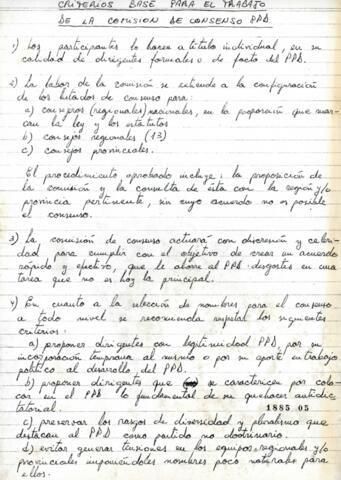 CRITERIOS BASE PARA EL TRABAJO
DE LA COMISION DE CONSENSO PPD.
1) Los participantes lo hacen a título individual, en su
calidad de dirigentes formales o de facto del PPD.
2) La labor de la comisión se extiende a la configuración
de los listados de consenso para:
a) consejeros (regionales) nacionales, en la proporción que mar-
can la ley y los estatutos
b) consejos regionales (13)
c) consejos provinciales.
El procedimiento aprobado incluye: la proposición de
la comisión y la consulta de ésta con la región y/o
provincia pertinente, sin cuyo acuerdo no es posible
el consenso.
3) La comisión de consenso actuará con discreción y celeri-
dad para cumplir con el objetivo de crear un acuerdo
rápido y efectivo, que le ahorre al PPD desgastes en una
tarea que no es hoy la principal.
4) En cuanto a la selección de nombres para el consenso
a todo nivel se recomienda respetar los siguientes
criterios:
a) proponer dirigentes con legitimidad PPD, por su
incorporación temprana al mismo o por su aporte en trabajo
político al desarrollo del PPD.
b) proponer dirigentes que se caractericen por colo-
car en el PPD lo fundamental de su quehacer antidic-
tatorial.
1885 05
c) preservar los rasgos de diversidad y pluralismo que
destacan al PPD como partido no doctrinario.
d) evitar generar tensiones en los equipos regionales y/o
provinciales imponiéndoles nombres poco naturales para
ellos.